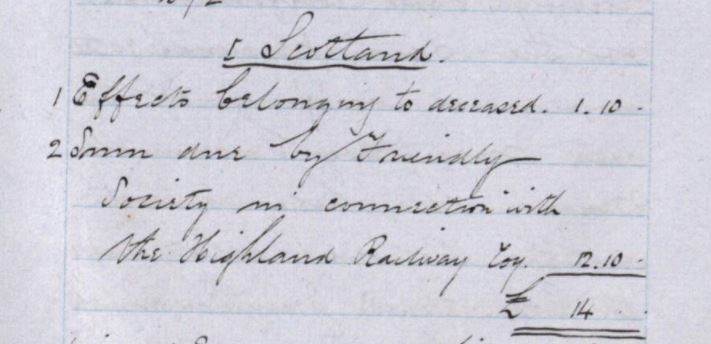 I Scotland.
1 Effects belonging to deceased. 1.10 -
2 Sum due by Friendly
Society in connection with
the Highland Railway Coy. 12.10 -
£ 14 - -